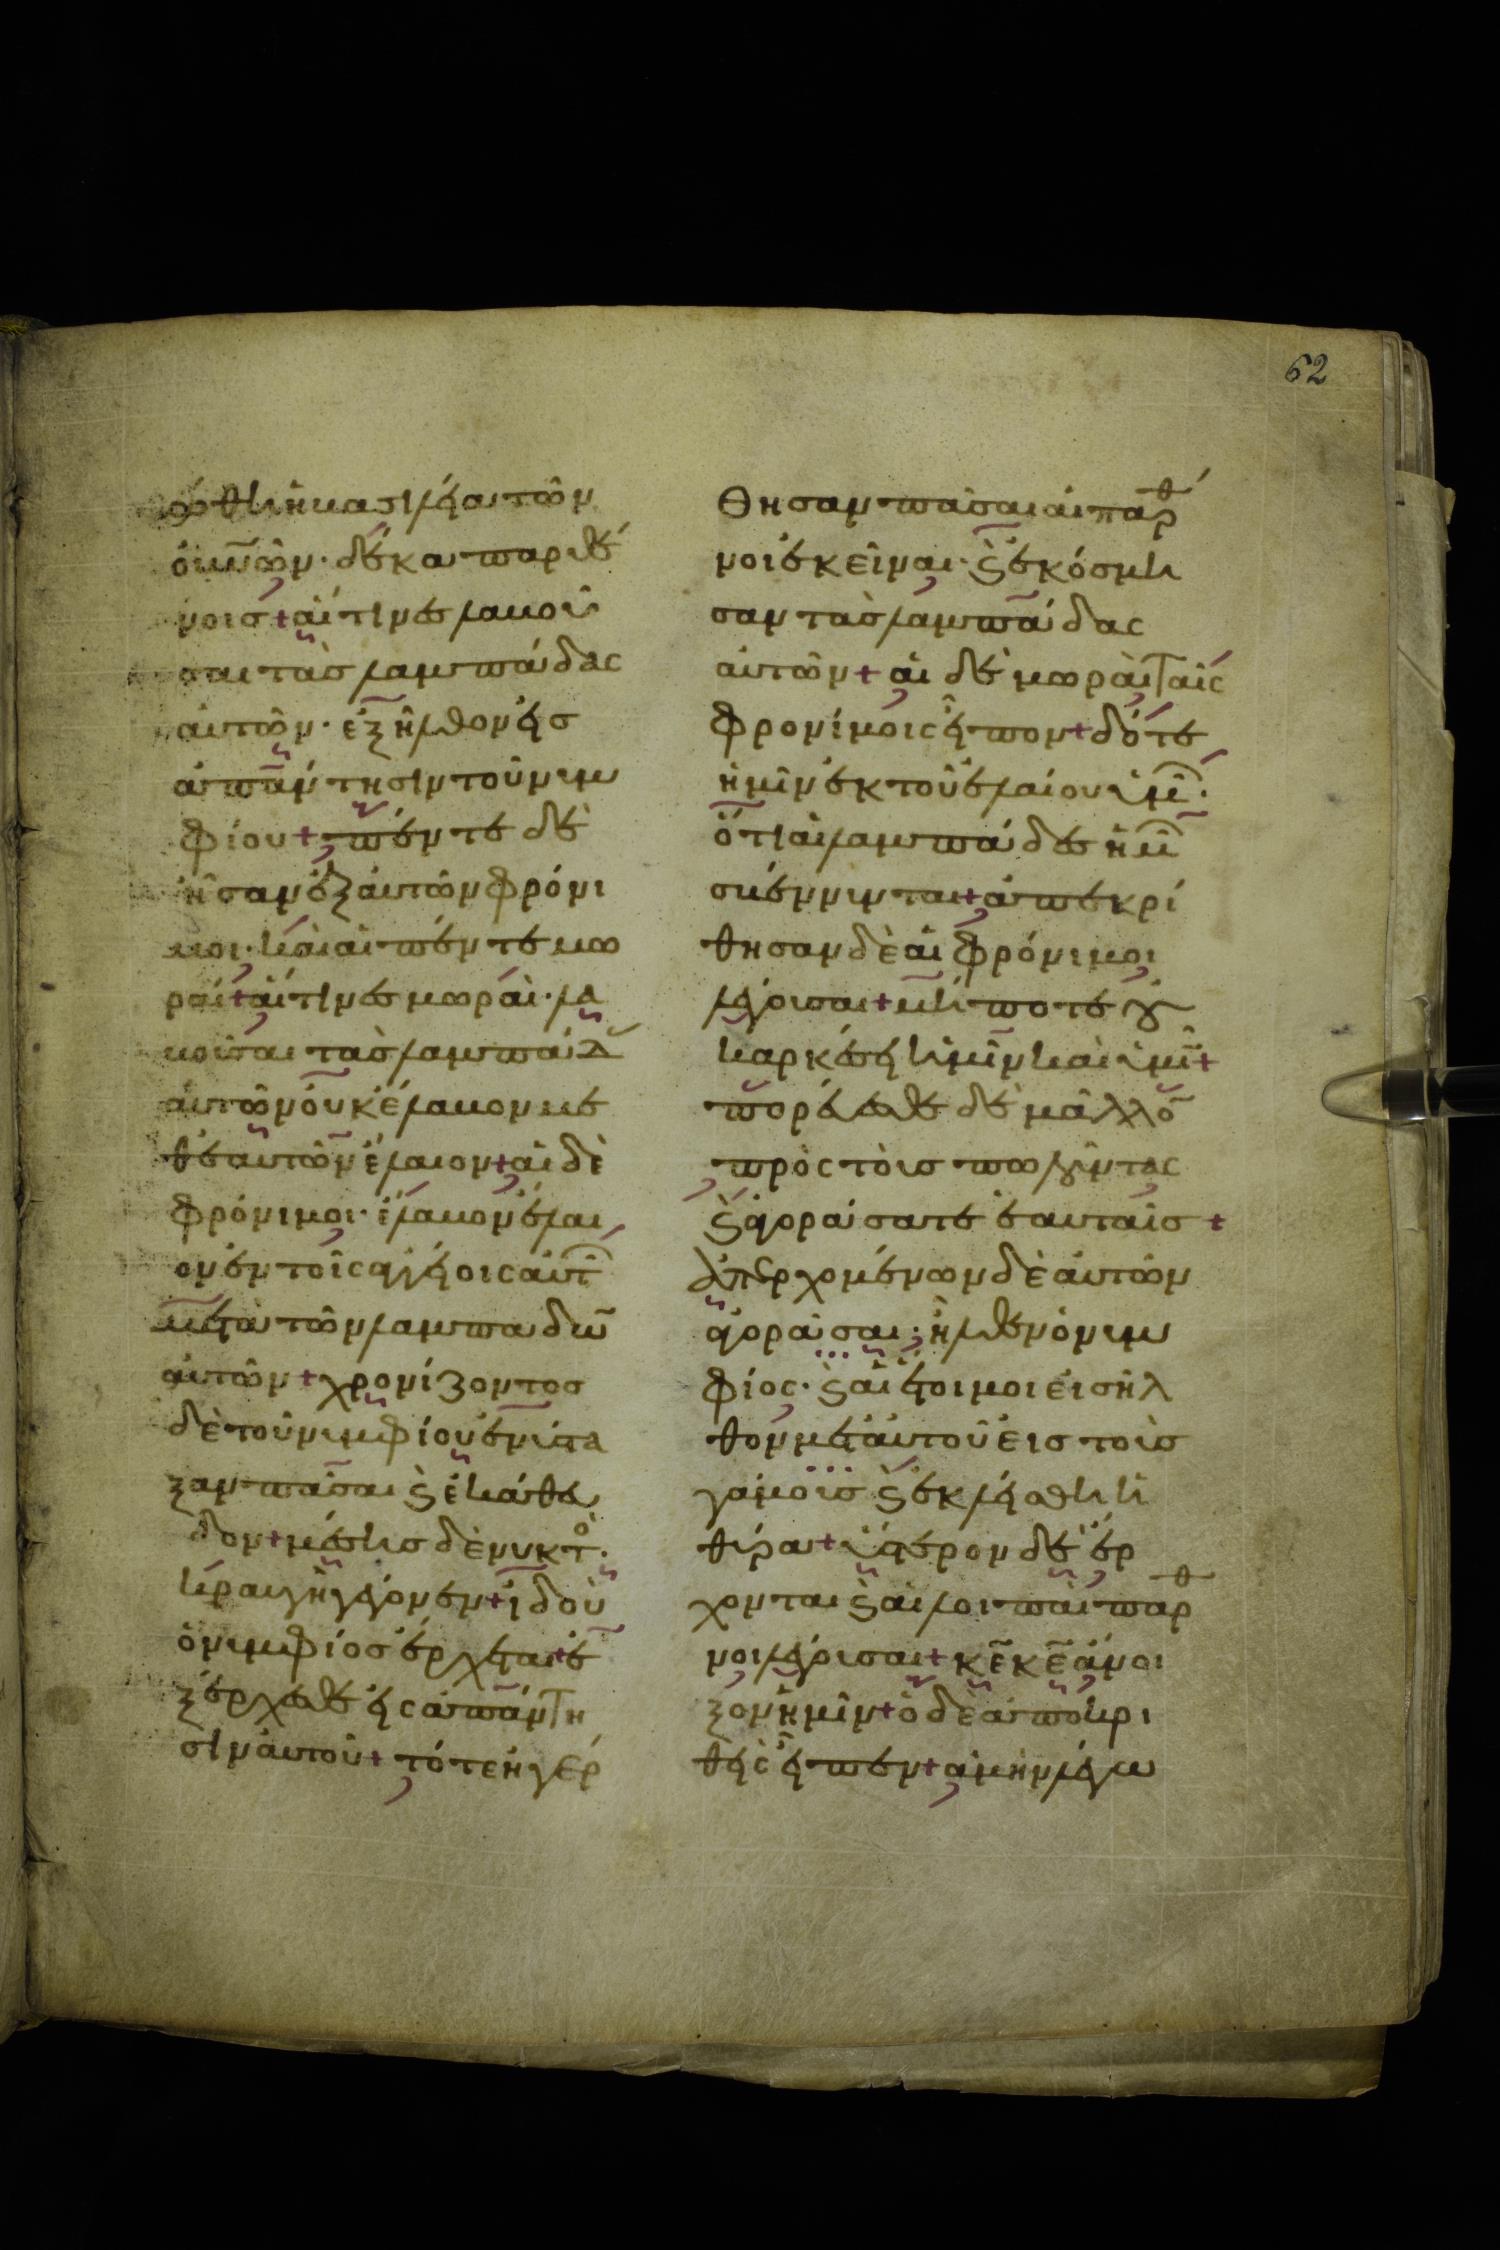 ώθη ἡ βασιλεία τῶν
οὐν̅ῶν· δέκα παρθέ
νοις + αἵτινες λαβοῦ
σαι τὰς λαμπάδας
αὐτῶν· ἐξῆλθον εἰς
ἀπάντησιν τοῦ νυμ
φίου + πέντε δὲ
ἦσαν ἐξ αὐτῶν φρόνι
μοι· καὶ αἱ πέντε μω
ραί + αἵτινες μωραὶ· λα
βοῦσαι τὰς λαμπάδ
αὐτῶν οὐκ ἔλαβον με
θ' ἑαυτῶν ἔλαιον + αἱ δὲ
φρόνιμοι· ἔλαβον ἔλαι
ον ἐν τοῖς ἀγγείοις αὐτ̑
μετὰ τῶν λαμπάδω̅
αὐτῶν + χρονίζοντος
δὲ τοῦ νυμφίου ἐνύστα
ξαν πᾶσαι ϗ ἐκάθευ
δον + μέσης δὲ νυκτὸ·
κραυγὴ γέγονεν + ἰδοὺ
ὁ νυμφίος ἔρχεται + ἐ
ξέρχεσθε εἰς ἀπάντη
σιν αὐτοῦ + τότε ἠγέρ
θησαν πᾶσαι αἱ παρθ
νοι ἐκεῖναι· ϗ ἐκόσμη
σαν τὰς λαμπάδας
αὐτῶν + αἱ δὲ μωραὶ ταῖς
φρονίμοις εἶπον + δότε
ἡμῖν ἐκ τοῦ ἐλαίου ὑμ̑·
ὅτι αἱ λαμπάδες ἡμ̑
σβέννυνται + ἀπεκρί
θησαν δὲ αἱ φρόνιμοι
λέγουσαι + μήποτε οὐ
κ ἀρκέσει ἡμῖν καὶ ὑμῖ̅ +
πορεύεσθε δὲ μᾶλλο̅
πρὸς τοὺς πωλοῦντας
ϗ ἀγοράσατε ἑαυταῖς +
ἀπερχομένων δὲ αὐτῶν
ἀγοράσαι· ἦλθεν ὁ νυμ
φίος· ϗ αἱ ἕτοιμοι εἰσῆλ
θον μετ' αὐτοῦ εἰς τοὺς
γάμους ϗ ἐκλείσθη ἡ
θύρα + ὕστερον δὲ ἔρ
χονται ϗ αἱ λοιπαὶ παρθ
νοι λέγουσαι + κ̅ε̅ κ̅ε̅ ἄνοι
ξον ἡμῖν + ὁ δὲ ἀποκρι
θεὶς εἶπεν + ἀμὴν λέγω
62